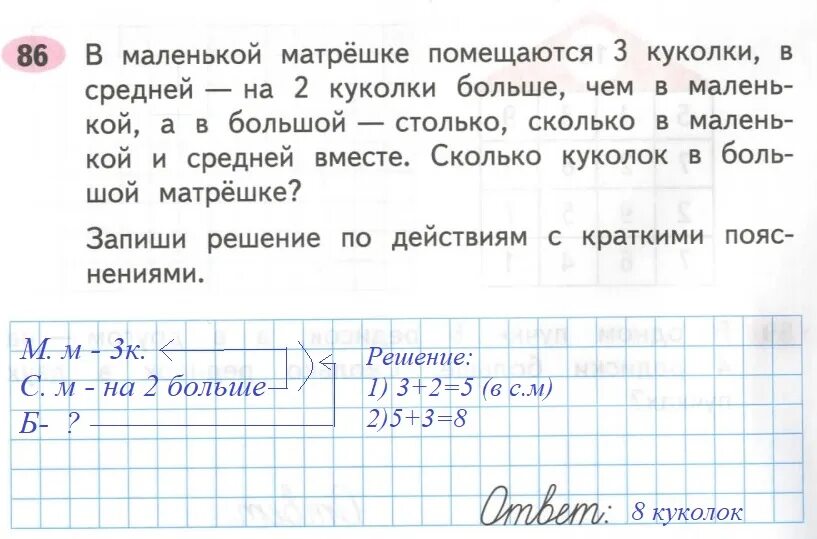 86 В маленькой матрёшке помещаются 3 куколки, в
средней — на 2 куколки больше, чем в малень-
кой, а в большой — столько, сколько в малень-
кой и средней вместе. Сколько куколок в боль-
шой матрёшке?
Запиши решение по действиям с краткими пояс-
нениями.
М. м - 3к.
С. м - на 2 больше
Б- ?
Решение:
1) 3+2=5 (в с.м)
2)5+3=8
Ответ: 8 куколок